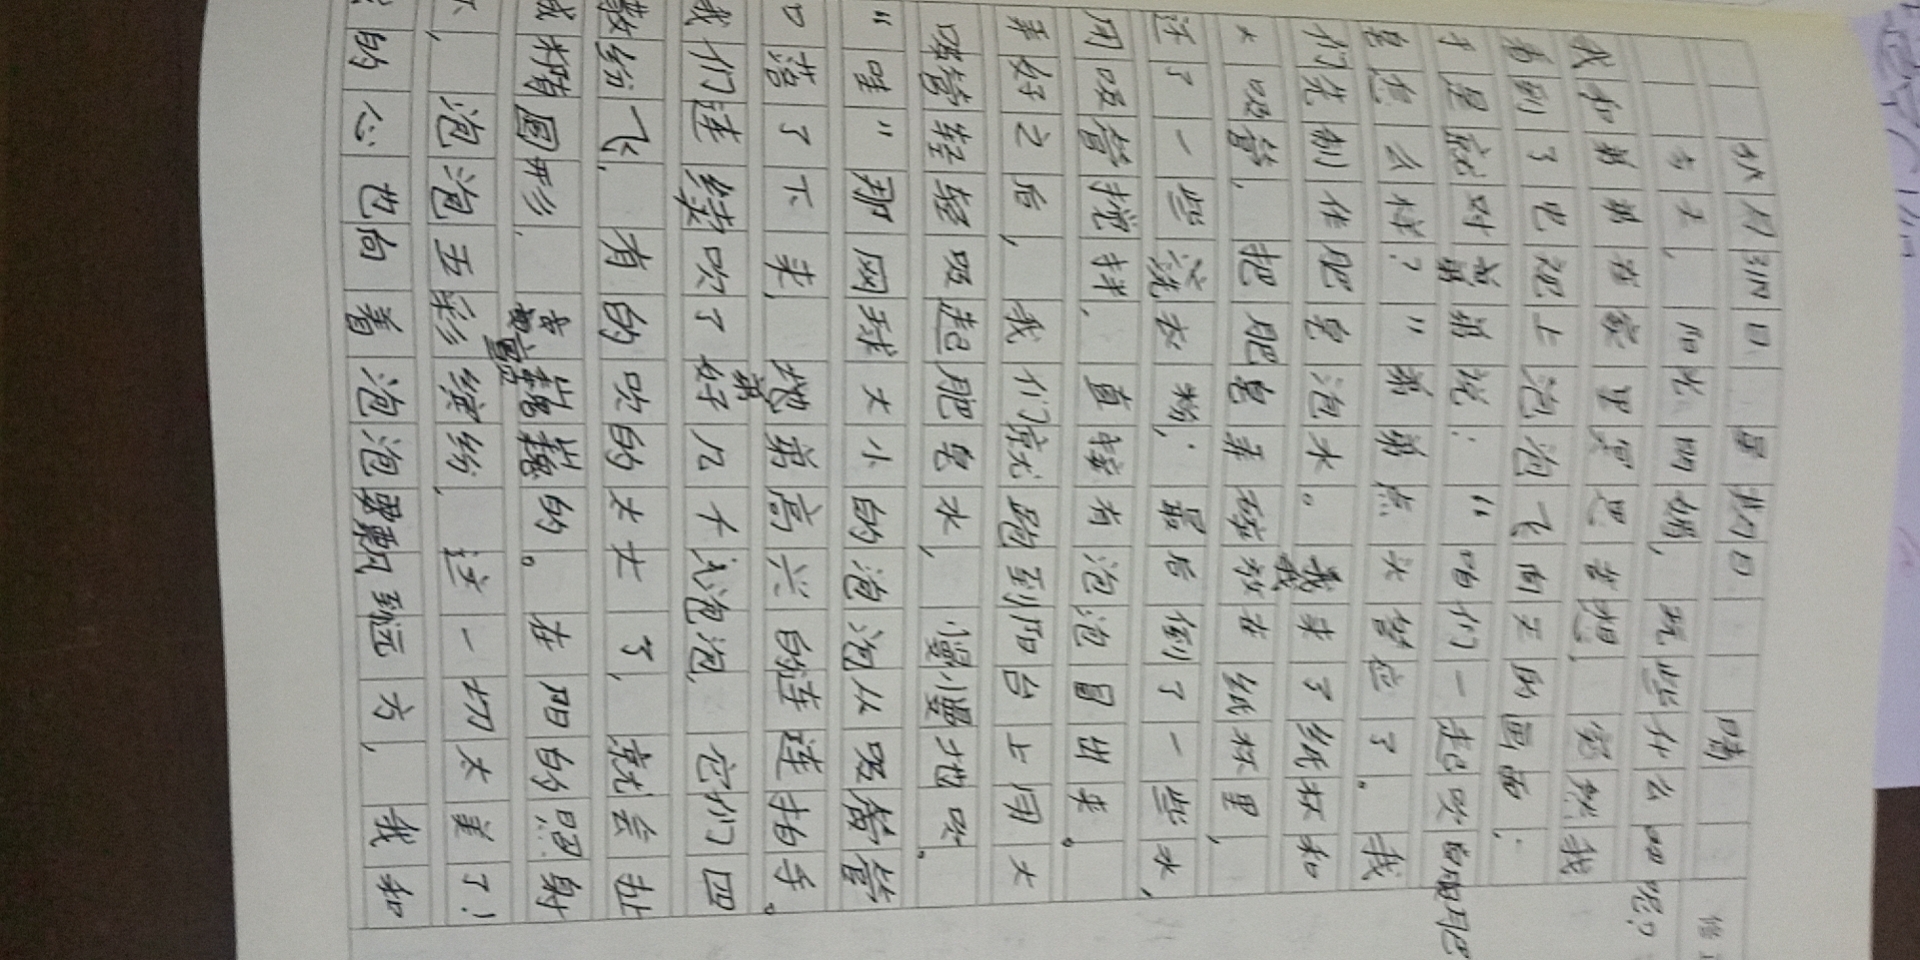 8月31日 星期日 晴
今天,阳光明媚,玩些什么呢?
我和姐姐在家里冥思苦想,忽然我
看到了电视上泡泡飞向天的画面;
于是就对姐姐说:“咱们一起吹泡泡吧
怎么样?”姐姐点头答应了。我
们先制作肥皂泡水。我拿了纸杯和
大吸管,把肥皂弄碎放在纸杯里,
还了一些洗衣粉;最后倒了一些水,
用吸管搅拌,直接有泡泡冒出来。
弄好之后,我们就跑到阳台上用大
吸管轻轻吸起肥皂水,慢慢地吹。
“哇”那网球大小的泡泡从吸管管
口落了下来,姐姐高兴的连连拍手。
我们连续吹了好几个泡泡,它们四
散纷飞,有的吹的太大了,就会扯
成椭圆形,在阳的照射
下,泡泡五彩缤纷,这一切太美了!
的心也向着泡泡飘到远方,我和